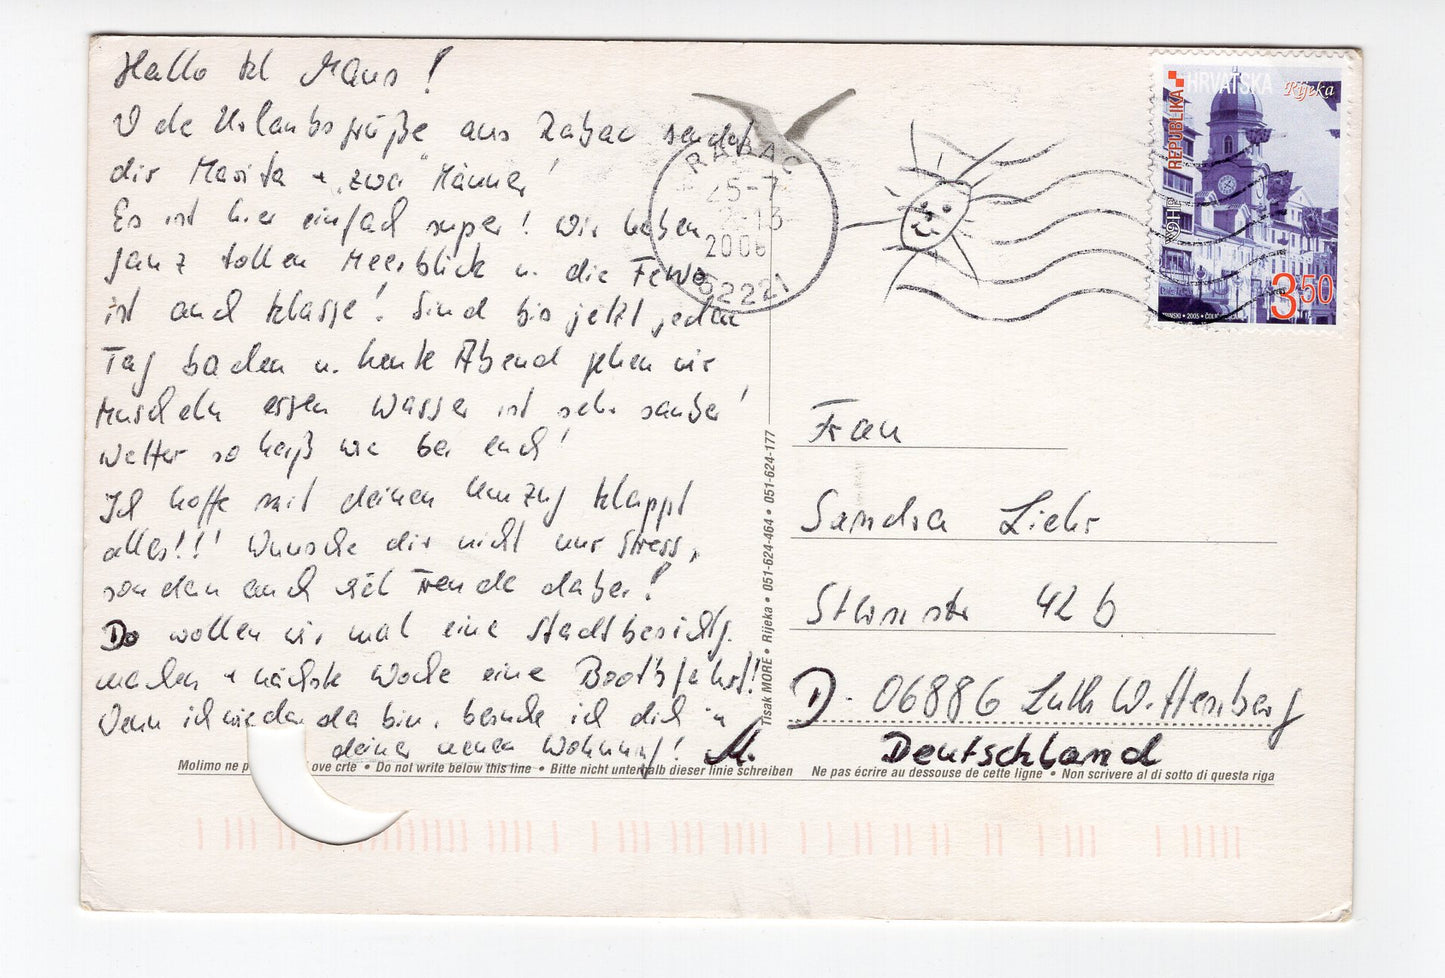 Hallo kl Maus!
Viele Urlaubsgrüße aus Rabac sendet
dir Marita + "zwa" Männer!
Es ist hier einfach super! Wir haben
ganz tollen Meerblick u. die FeWo
ist auch klasse! Sind bis jetzt jeden
Tag baden u. heute Abend gehen wir
Muscheln essen Wasser ist sehr sauber!
Wetter so heiß wie bei euch!
Ich hoffe mit deinen Umzug klappt
alles!!! Wünsche dir nicht nur Stress,
sondern auch viel Freude dabei!
Do wollen wir mal eine Stadtbesichtg.
machen + nächste Woche eine Bootsfahrt!
Wenn ich wieder da bin, besuche ich dich in
deiner neuen Wohnung! M.
RABAC
25-7
2006
52221
REPUBLIKA HRVATSKA
Rijeka
3,50
Frau
Sandra Liehr
42 b
D-06886 Luth Wittenberg
Deutschland
Tisak MORE • Rijeka • 051-624-464 • 051-624-177
Molimo ne p ove crte • Do not write below this line • Bitte nicht unterhalb dieser linie schreiben Ne pas écrire au dessouse de cette ligne • Non scrivere al di sotto di questa riga